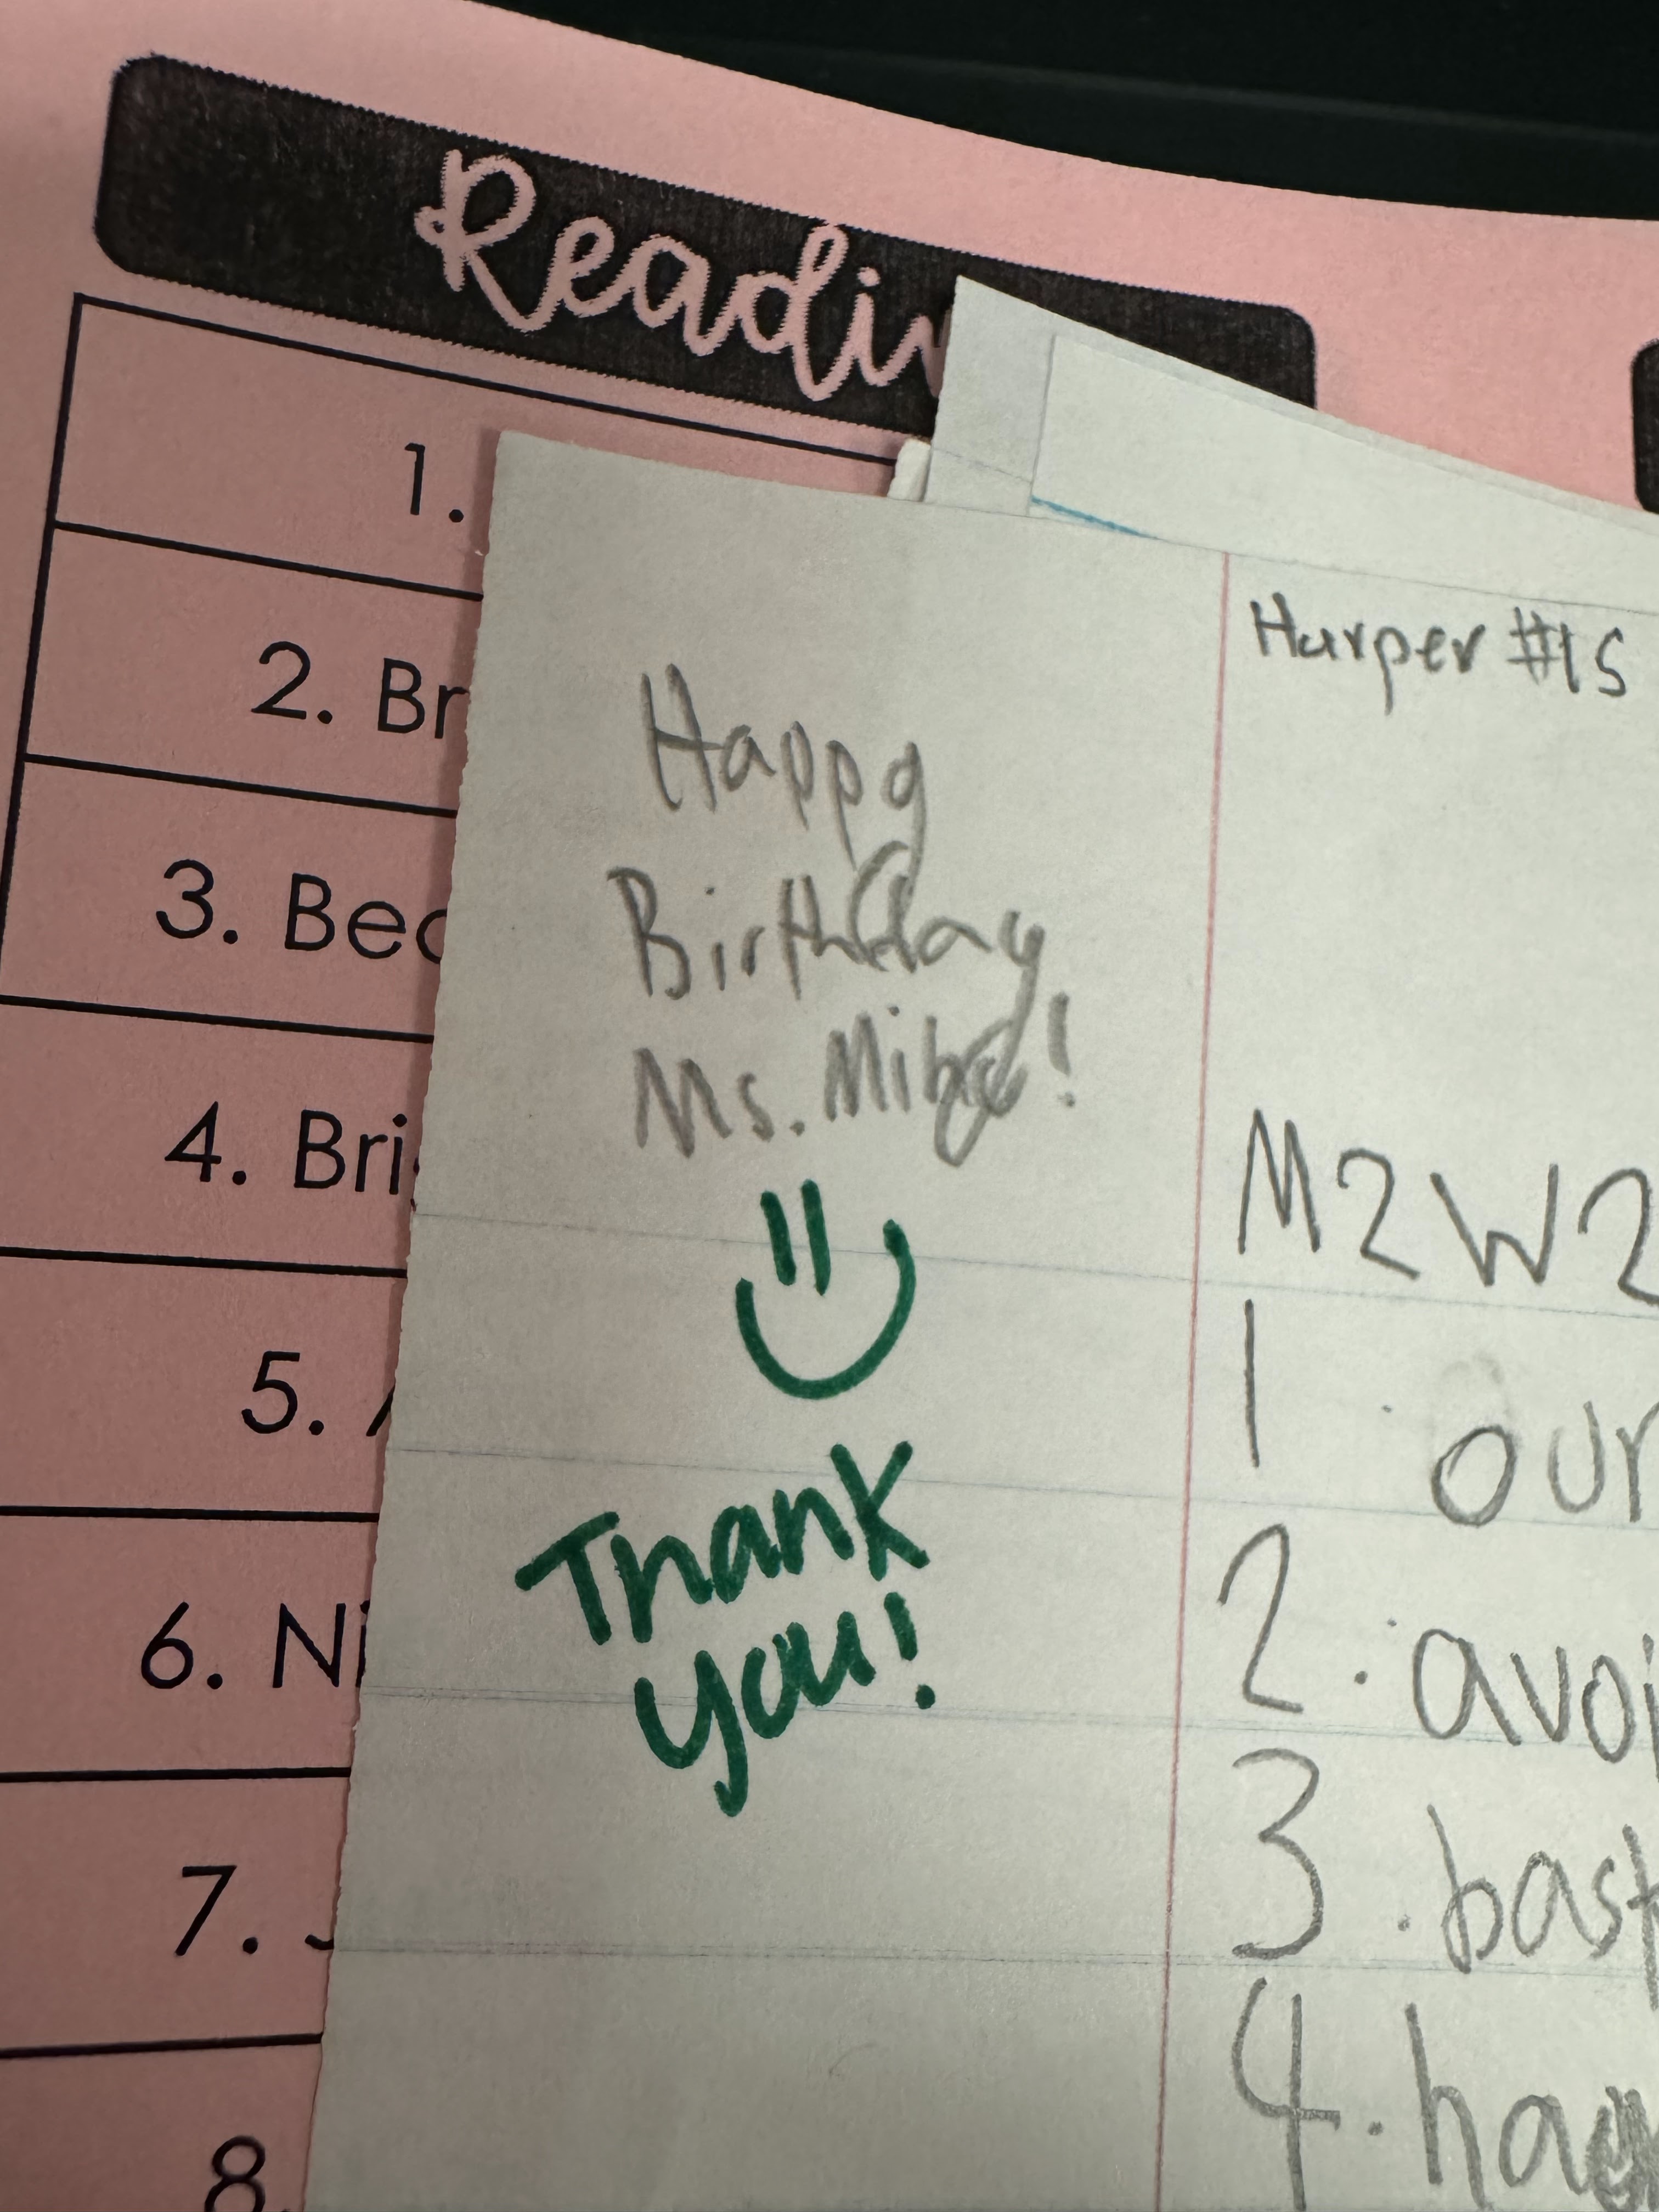 Readin
1.
2. Br
3. Bec
4. Bri
5.
6. Ni
7.
8.
Happy
Birthday
Ms.
Thank
you!
Harper #15
M2W2
1 our
2. avoi
3. bask
4.